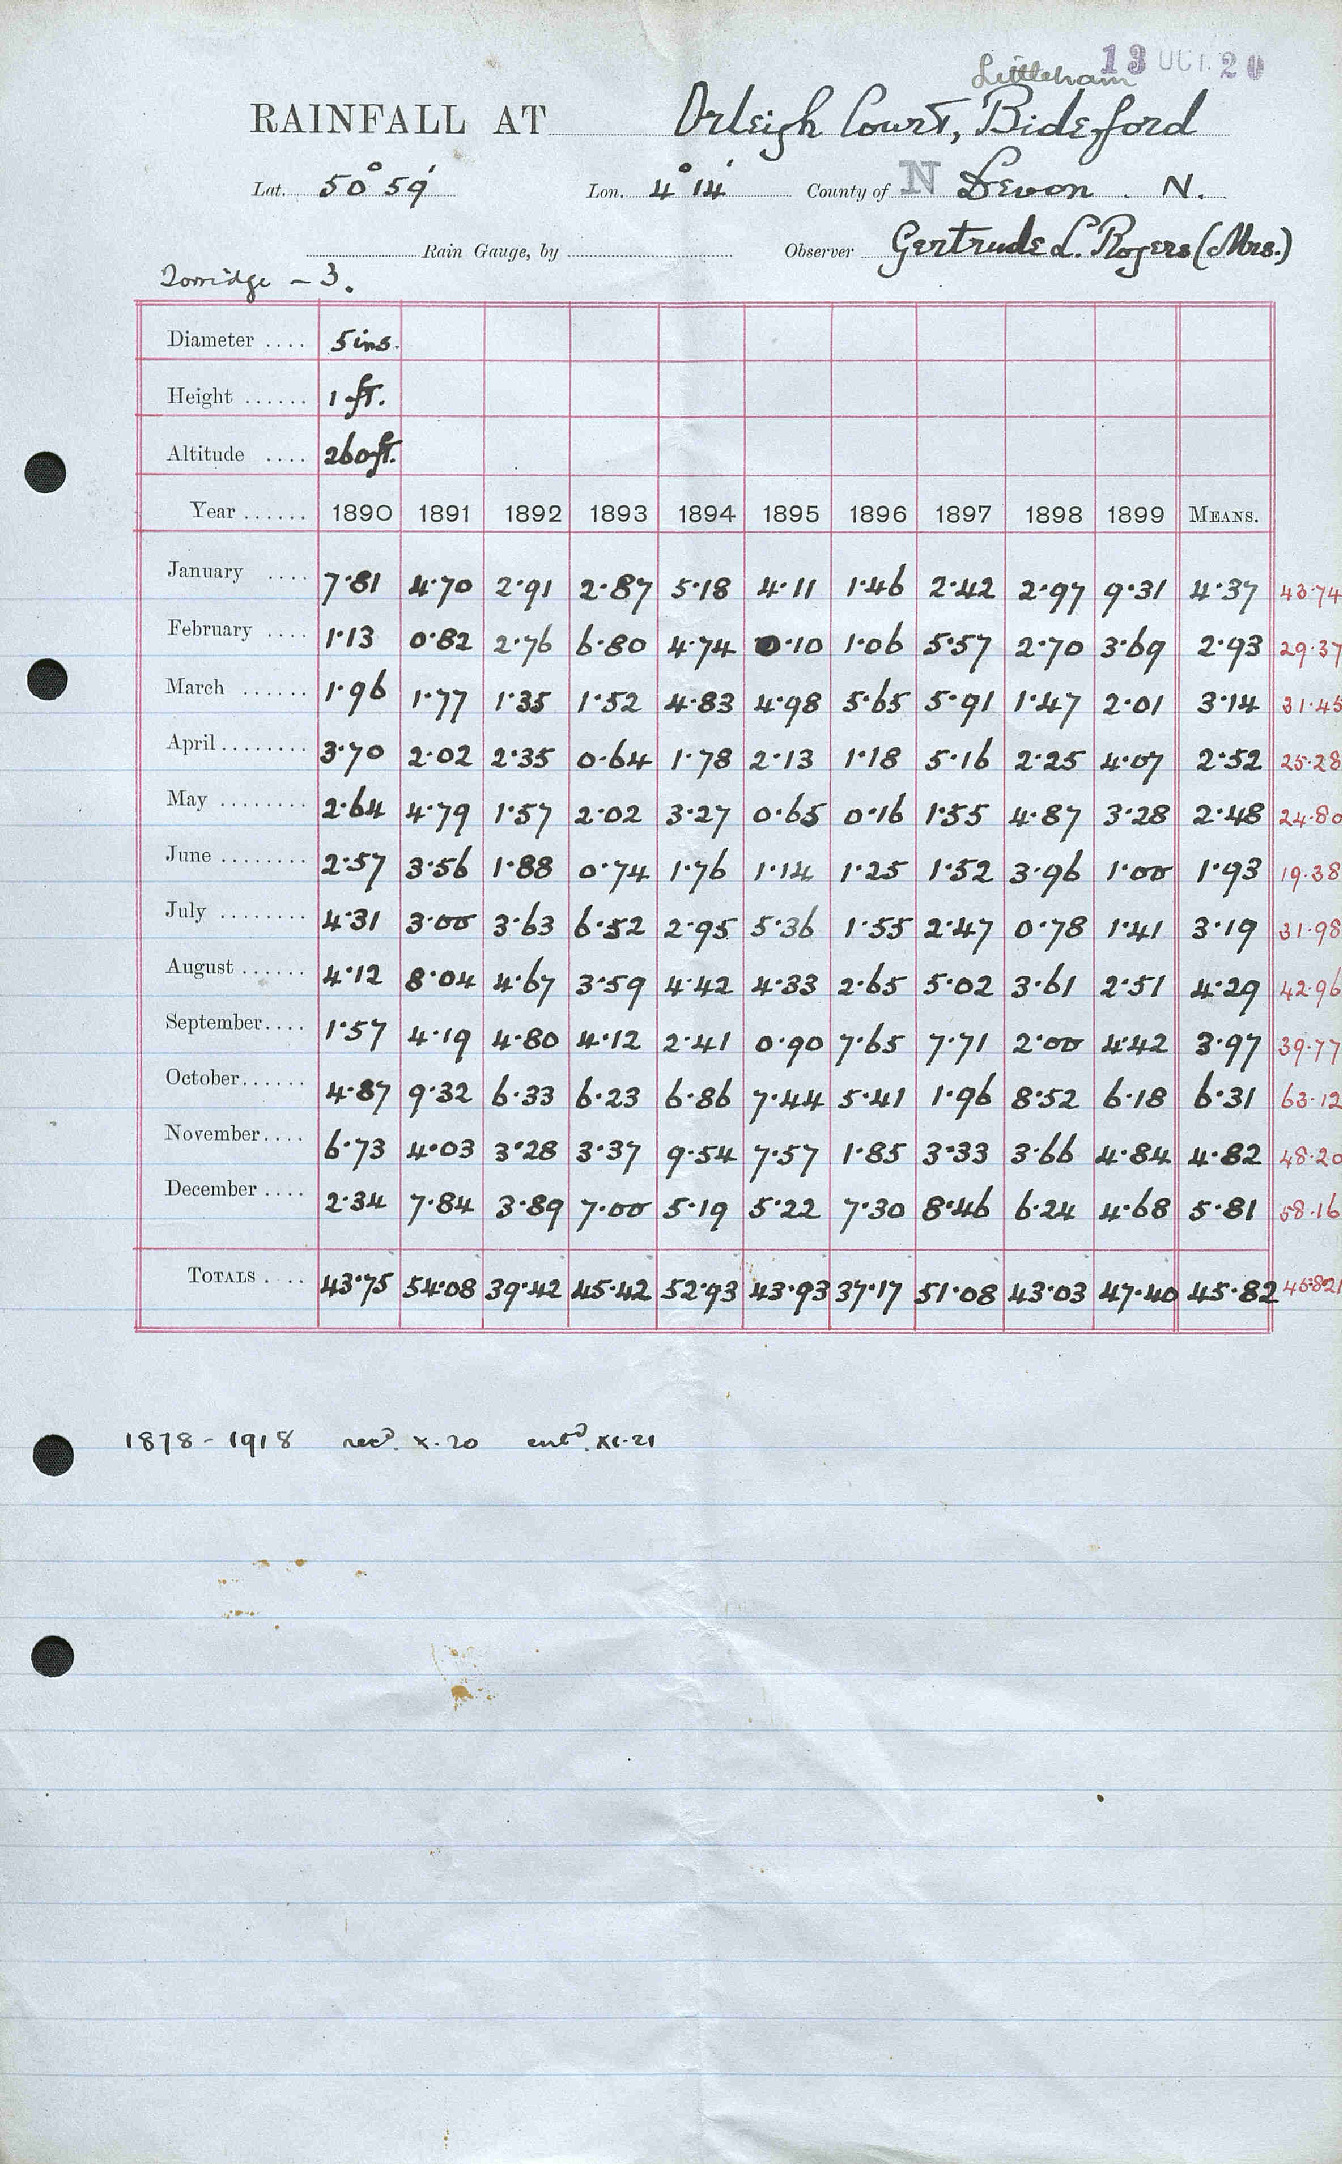 13 OCT. 20
Littleham
RAINFALL AT Orleigh Court, Bideford
Lat. 50° 59' Lon. 4° 14' County of N Devon. N.
Rain Gauge, by Observer Gertrude L. Rogers (Mrs.)
Torridge - 3.
Diameter .... 5 ins.
Height ...... 1 ft.
Altitude .... 260 ft.
Year ...... 1890 1891 1892 1893 1894 1895 1896 1897 1898 1899 MEANS.
January .... 7·81 4·70 2·91 2·87 5·18 4·11 1·46 2·42 2·97 9·31 4·37 43·74
February .... 1·13 0·82 2·76 6·80 4·74 0·10 1·06 5·57 2·70 3·69 2·93 29·37
March ...... 1·96 1·77 1·35 1·52 4·83 4·98 5·65 5·91 1·47 2·01 3·14 31·45
April ........ 3·70 2·02 2·35 0·64 1·78 2·13 1·18 5·16 2·25 4·07 2·52 25·28
May ........ 2·64 4·79 1·57 2·02 3·27 0·65 0·16 1·55 4·87 3·28 2·48 24·80
June ........ 2·57 3·56 1·88 0·74 1·76 1·14 1·25 1·52 3·96 1·00 1·93 19·38
July ........ 4·31 3·00 3·63 6·52 2·95 5·36 1·55 2·47 0·78 1·41 3·19 31·98
August ...... 4·12 8·04 4·67 3·59 4·42 4·33 2·65 5·02 3·61 2·51 4·29 42·96
September.... 1·57 4·19 4·80 4·12 2·41 0·90 7·65 7·71 2·00 4·42 3·97 39·77
October...... 4·87 9·32 6·33 6·23 6·86 7·44 5·41 1·96 8·52 6·18 6·31 63·12
November.... 6·73 4·03 3·28 3·37 9·54 7·57 1·85 3·33 3·66 4·84 4·82 48·20
December .... 2·34 7·84 3·89 7·00 5·19 5·22 7·30 8·46 6·24 4·68 5·81 58·16
TOTALS .... 43·75 54·08 39·42 45·42 52·93 43·93 37·17 51·08 43·03 47·40 45·82 45·821
1878 - 1918 recd. X. 20 entd. XI. 21